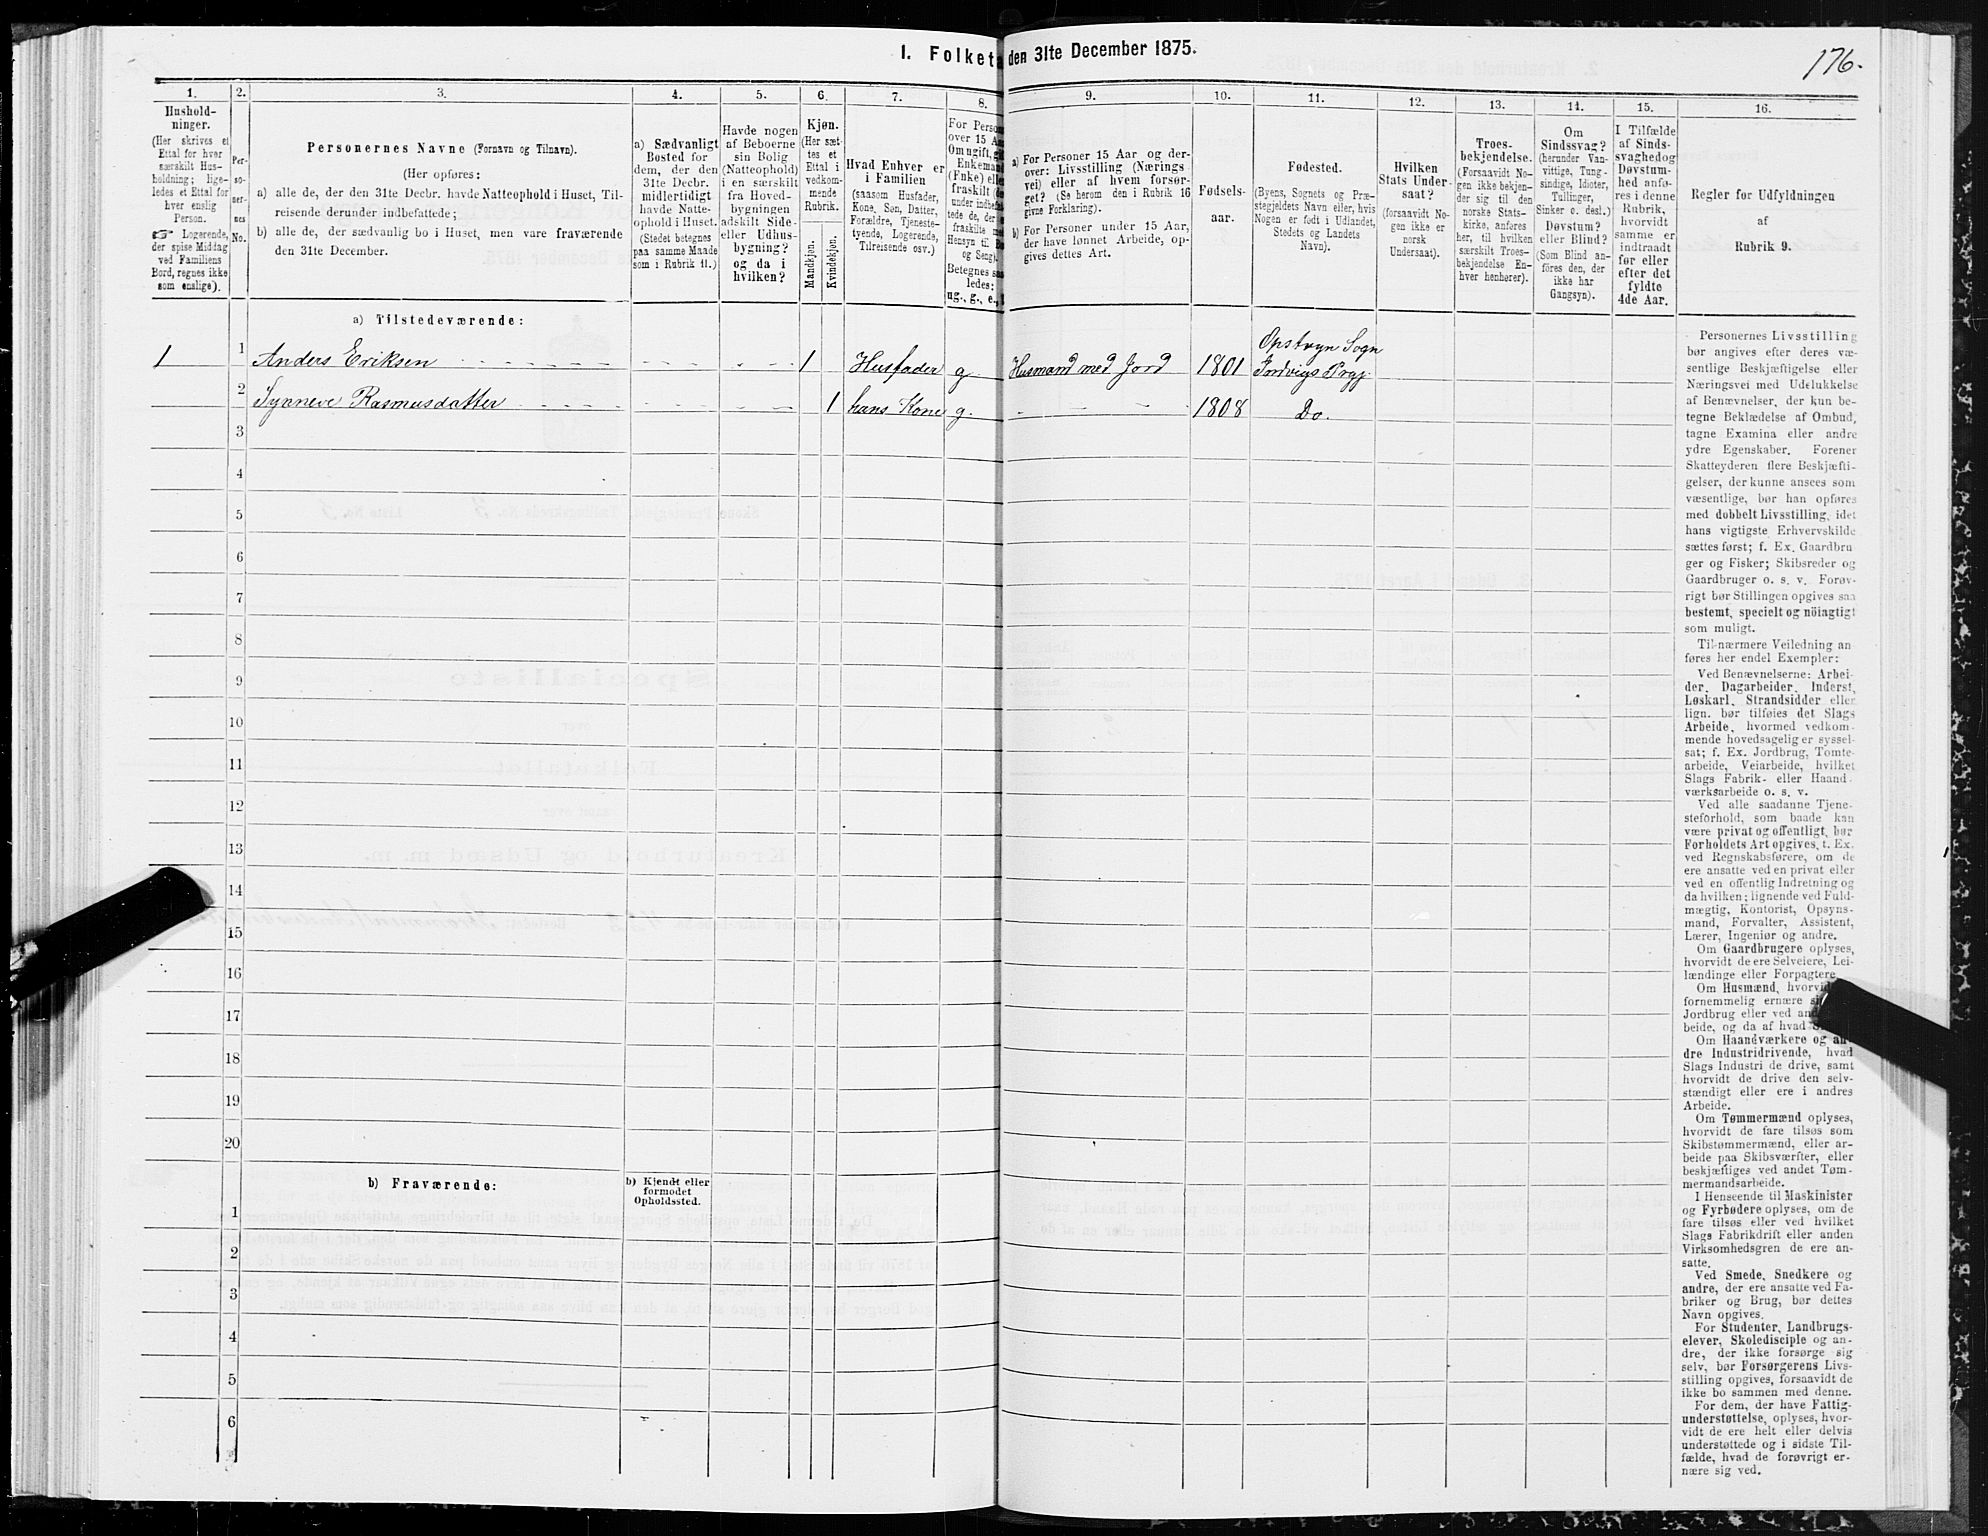 I. Folketa den 31te December 1875.
176.
1.
2.
3.
4.
5.
6.
7.
8.
9.
10.
11.
12.
13.
14.
15.
16.
Hushold-
ninger.
(Her skrives et
Ettal for hver
særskilt Hus-
holdning; lige-
ledes et Ettal for
hver enslig
Person.
☞ Logerende,
der spise Middag
ved Familiens
Bord, regnes ikke
som enslige).
Per-
so-
ner-
nes
No.
Personernes Navne (Fornavn og Tilnavn).
(Her opføres:
a) alle de, der den 31te Decbr. havde Natteophold i Huset, Til-
reisende derunder indbefattede;
b) alle de, der sædvanlig bo i Huset, men vare fraværende
den 31te December.
a) Sædvanligt
Bosted for
dem, der den
31te Decbr.
midlertidigt
havde Natte-
ophold i Huset.
(Stedet betegnes
paa samme Maade
som i Rubrik 11.)
Havde nogen
af Beboerne
sin Bolig
(Natteophold)
i en særskilt
fra Hoved-
bygningen
adskilt Side-
eller Udhus-
bygning?
og da i
hvilken?
Kjøn.
(Her sæt-
tes et
Ettal i
vedkom-
mende
Rubrik.
Mandkjøn.
Kvindekjøn.
Hvad Enhver er
i Familien
(saasom Husfader,
Kone, Søn, Datter,
Forældre, Tjeneste-
tyende, Logerende,
Tilreisende osv.)
For Perso
over 15 Aa
Om ugift, gi
Enkemand
(Enke) elle
fraskilt (de
under indbe
tede de, der e
fraskilte m
Hensyn til Bo
og Seng).
Betegnes saa
ledes:
ug., g., e.,
a) For Personer 15 Aar og der-
over: Livsstilling (Nærings
vei) eller af hvem forsør-
get? (Se herom den i Rubrik 16
givne Forklaring).
b) For Personer under 15 Aar,
der have lønnet Arbeide, op-
gives dettes Art.
Fødsels-
aar.
Fødested.
(Byens, Sognets og Præ-
stegjeldets Navn eller, hvis
Nogen er født i Udlandet,
Stedets og Landets
Navn).
Hvilken
Stats Under-
saat?
(forsaavidt No-
gen ikke er
norsk
Undersaat).
Troes-
bekjendelse.
(Forsaavidt No-
gen ikke bekjen-
der sig til den
norske Stats-
kirke, anføres
her, til hvilken
særskilt Troes-
bekjendelse En-
hver henhører).
Om
Sindssvag?
(herunder Van-
vittige, Tung-
sindige, Idioter,
Tullinger,
Sinker o. desl.)
Døvstum?
eller Blind?
(Som Blind an-
føres den, der
ikke har
Gangsyn).
I Tilfælde
af Sinds-
svaghed og
Døvstum-
hed anfø-
res i denne
Rubrik,
hvorvidt
samme er
indtraadt
før eller
efter det
fyldte
4de Aar.
Regler for Udfyldningen
af
Rubrik 9.
a) Tilstedeværende:
1 1 Anders Eriksen 1 Husfader g Husmand med Jord 1801 Opstryn Sogn
Indvigs Prgj.
2 Synneve Rasmusdatter 1 hans Kone g. 1808 Do.
3
4
5
6
7
8
9
10
11
12
13
14
15
16
17
18
19
20
b) Fraværende:
b) Kjendt eller
formodet
Opholdssted.
1
2
3
4
5
6
Personernes Livsstilling
bør angives efter deres væ-
sentlige Beskjæftigelse eller
Næringsvei med Udelukkelse
af Benævnelser, der kun be-
tegne Beklædelse af Ombud,
tagne Examina eller andre
ydre Egenskaber. Forener
Skatteyderen flere Beskjæfti-
gelser, der kunne ansees som
væsentlige, bør han opføres
med dobbelt Livsstilling, idet
hans vigtigste Erhvervskilde
sættes først; f. Ex. Gaardbru
ger og Fisker; Skibsreder og
Gaardbruger o. s. v. Forøv-
rigt bør Stillingen opgives saa
bestemt, specielt og nöiagtigt
som muligt.
Til nærmere Veiledning an
føres her endel Exempler:
Ved Benævnelserne: Arbei-
der, Dagarbeider, Inderst,
Løskarl, Strandsidder eller
lign. bør tilføies det Slags
Arbeide, hvormed vedkom-
mende hovedsagelig er syssel-
sat; f. Ex. Jordbrug, Tomte-
arbeide, Veiarbeide, hvilket
Slags Fabrik- eller Haand-
værksarbeide o. s. v.
Ved alle saadanne Tjene-
steforhold, som baade kan
være privat og offentligt, bør
Forholdets Art opgives, f. Ex.
ved Regnskabsførere, om de
ere ansatte ved en privat eller
ved en offentlig Indretning og
da hvilken; lignende ved Fuld-
mægtig, Kontorist, Opsyns-
mand, Forvalter, Assistent,
Lærer, Ingeniør og andre.
Om Gaardbrugere oplyses,
hvorvidt de ere Selveiere, Lei-
lændinge eller Forpagtere.
Om Husmænd, hvorvid
fornemmelig ernære si
Jordbrug eller ved an
beide, og da af hvad S
Om Haandværkere og an-
dre Industridrivende, hvad
Slags Industri de drive, samt
hvorvidt de drive den selv-
stændigt eller ere i andres
Arbeide.
Om Tømmermænd oplyses,
hvorvidt de fare tilsøs som
Skibstømmermænd, eller ar-
beide paa Skibsværfter, eller
beskjæftiges ved andet Tøm-
mermandsarbeide.
I Henseende til Maskinister
og Fyrbødere oplyses, om de
fare tilsøs eller ved hvilket
Slags Fabrikdrift eller anden
Virksomhedsgren de ere an-
satte.
Ved Smede, Snedkere og
andre, der ere ansatte ved Fa-
briker og Brug, bør dettes
Navn opgives.
For Studenter, Landbrugs-
elever, Skoledisciple og an-
dre, der ikke forsørge sig
selv, bør Forsørgerens Livs-
stilling opgives, forsaavidt de
ikke bo sammen med denne.
For dem, der have Fattig-
understøttelse, oplyses, hvor-
vidt de ere helt eller delvis
understøttede og i sidste Til-
fælde, hvad de forøvrigt er-
nære sig ved.